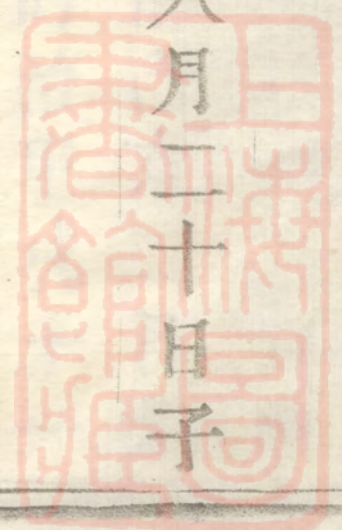 八月二十日子
上海圖
書館藏